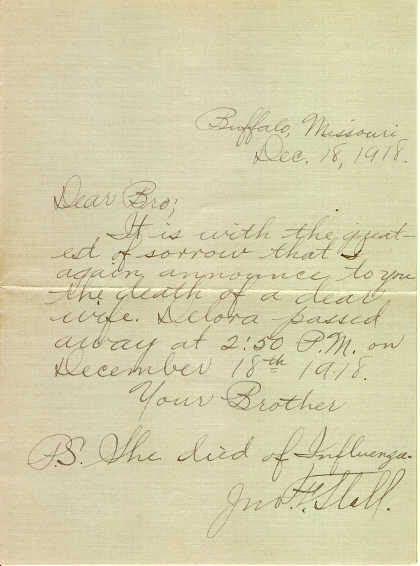 Buffalo, Missouri
Dec. 18, 1918.
Dear Bro;
It is with the great-
est of sorrow that I
again announce to you
the death of a dear
wife. Delora passed
away at 2:50 P.M. on
December 18th 1918.
Your Brother
P.S. She died of Influenza.
Jno. H. Stall.